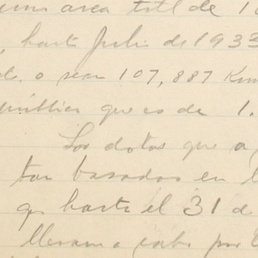 una area total de 1
, hasta Julio de 1933
o sean 107,887 Km
que es de 1.
Los datos que a
tan basados en l
que hasta el 31 d
llevaron a cabo por l